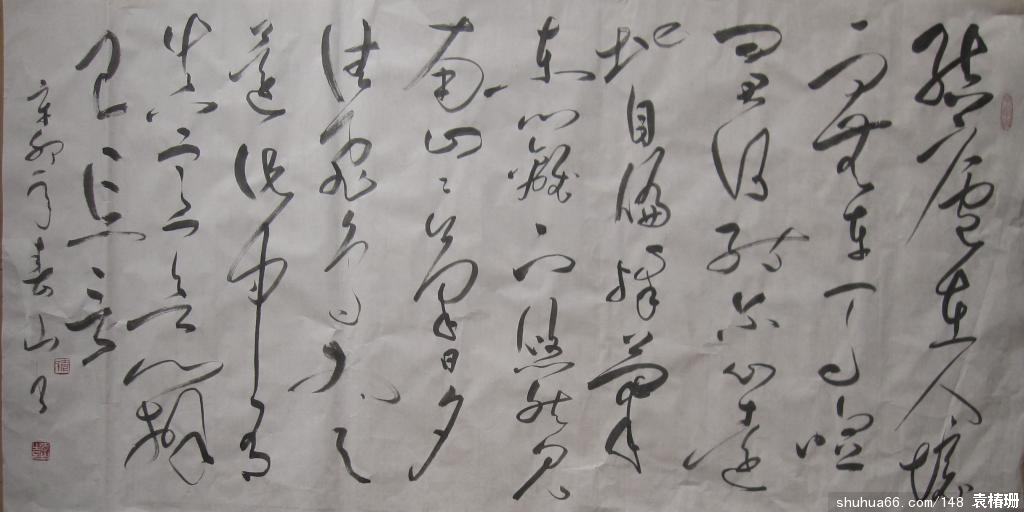 結廬在人境
而無車馬喧
問君何能爾心遠
地自偏採菊
東籬下悠然見
南山山氣日夕
佳飛鳥相與
還此中有
真意欲辨
已忘言
辛卯 春山
shuhua66.com/148 袁椿珊